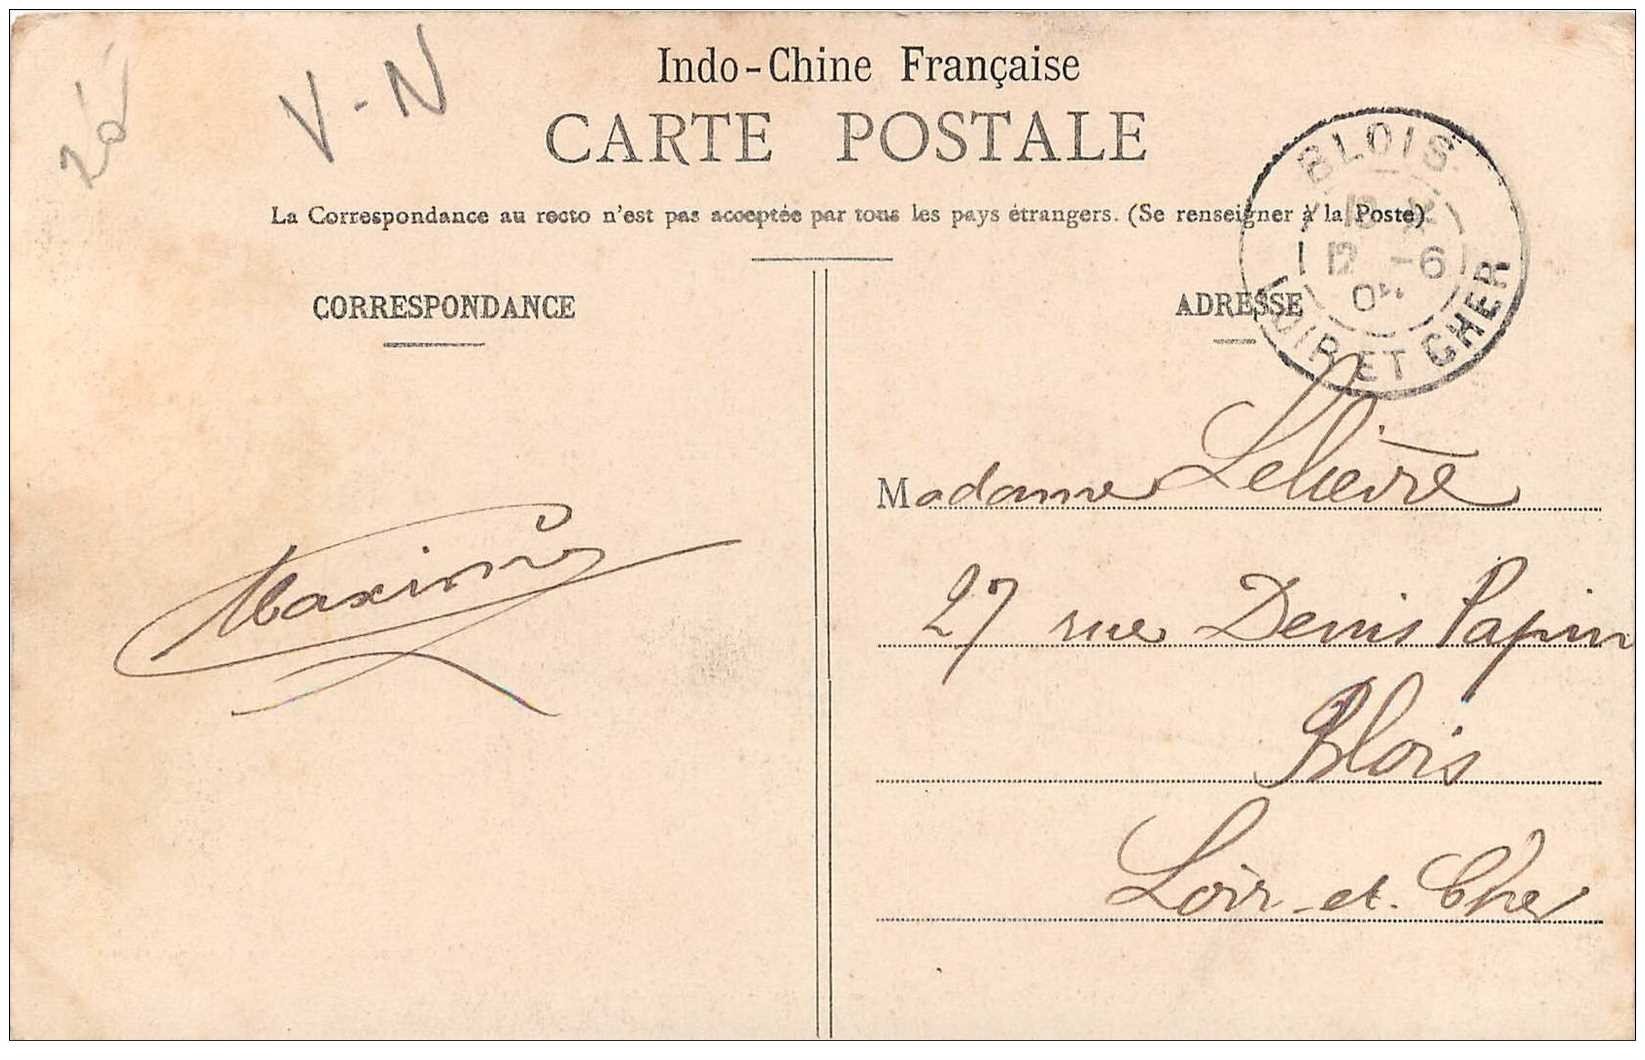 V-N
Indo-Chine Française
CARTE POSTALE
La Correspondance au recto n'est pas acceptée par tous les pays étrangers. (Se renseigner à la Poste)
BLOIS
12 -6
LOIR ET CHER
CORRESPONDANCE
ADRESSE
Madame Lelièvre
27 rue Denis Papin
Blois
Loir-et-Cher